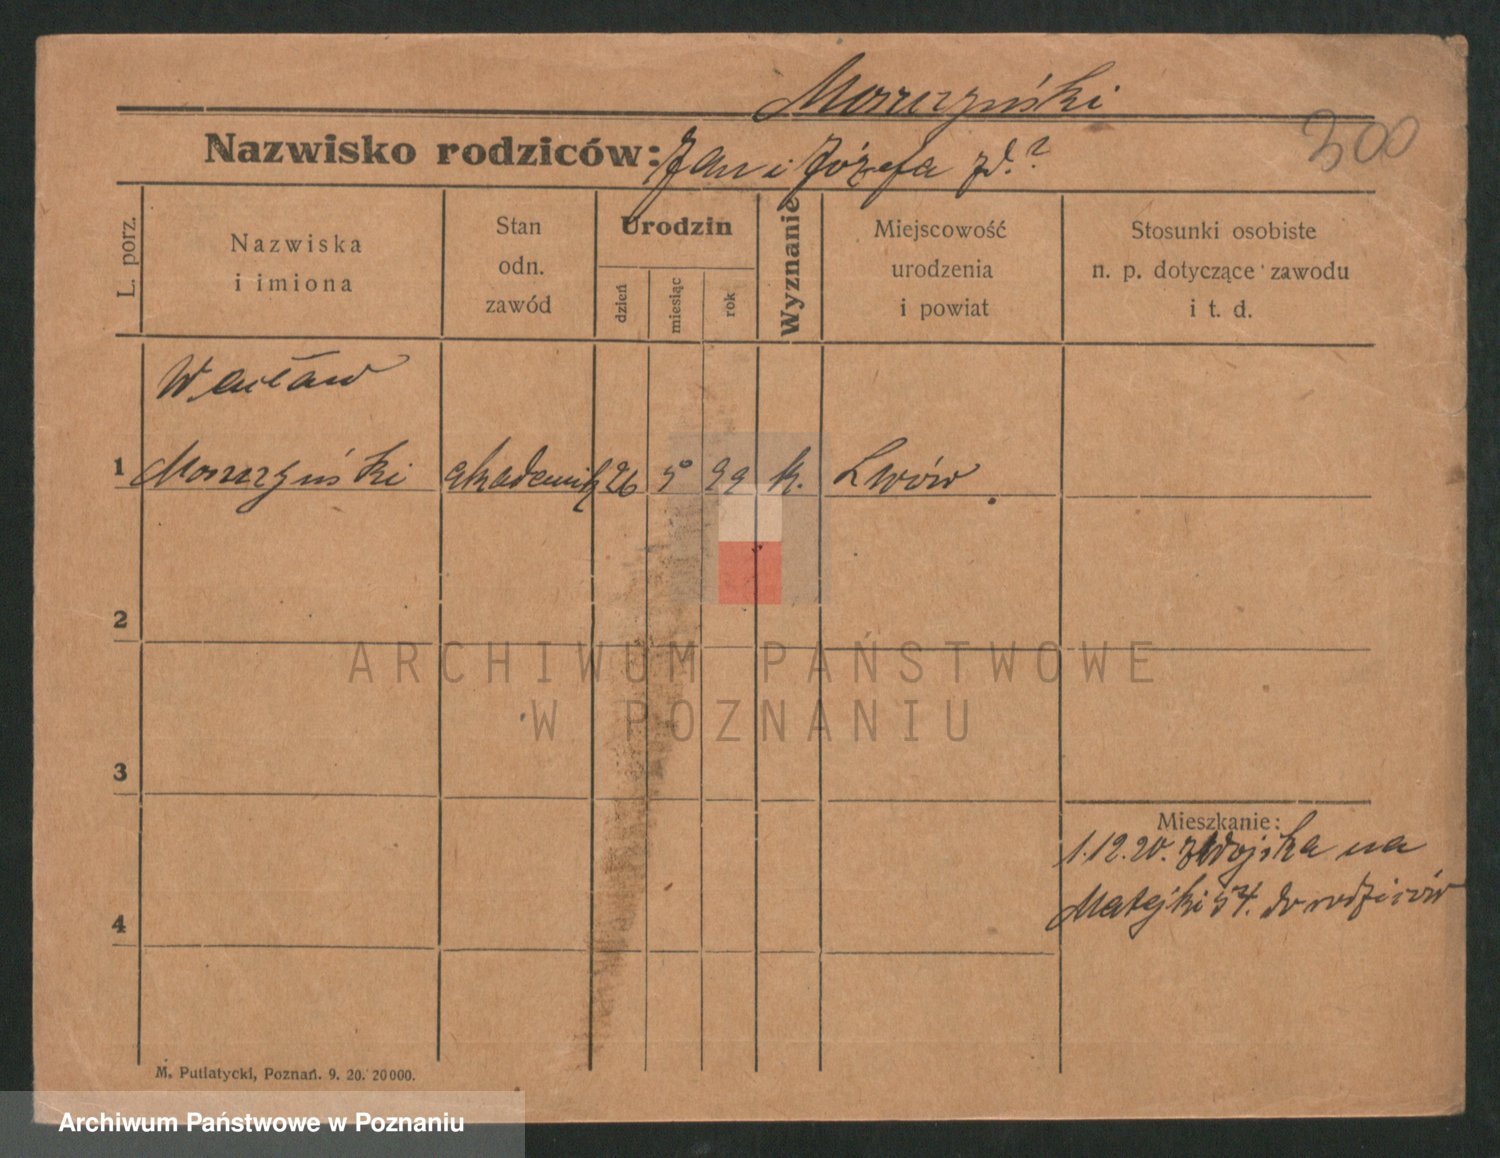 Moszczyński
300
Nazwisko rodziców: Jan i Józefa zd. ?
L. porz.
Nazwiska
i imiona
Stan
odn.
zawód
Urodzin
dzień
miesiąc
rok
Wyznanie
Miejscowość
urodzenia
i powiat
Stosunki osobiste
n. p. dotyczące zawodu
i t. d.
Wacław
1 Moszczyński akademik 26 5 99 k. Lwów
2
ARCHIWUM PAŃSTWOWE
W POZNANIU
3
Mieszkanie:
1.12.20. z Wojska na
Matejki 54. do rodziców
4
M. Putiatycki, Poznań. 9. 20. 20000.
Archiwum Państwowe w Poznaniu